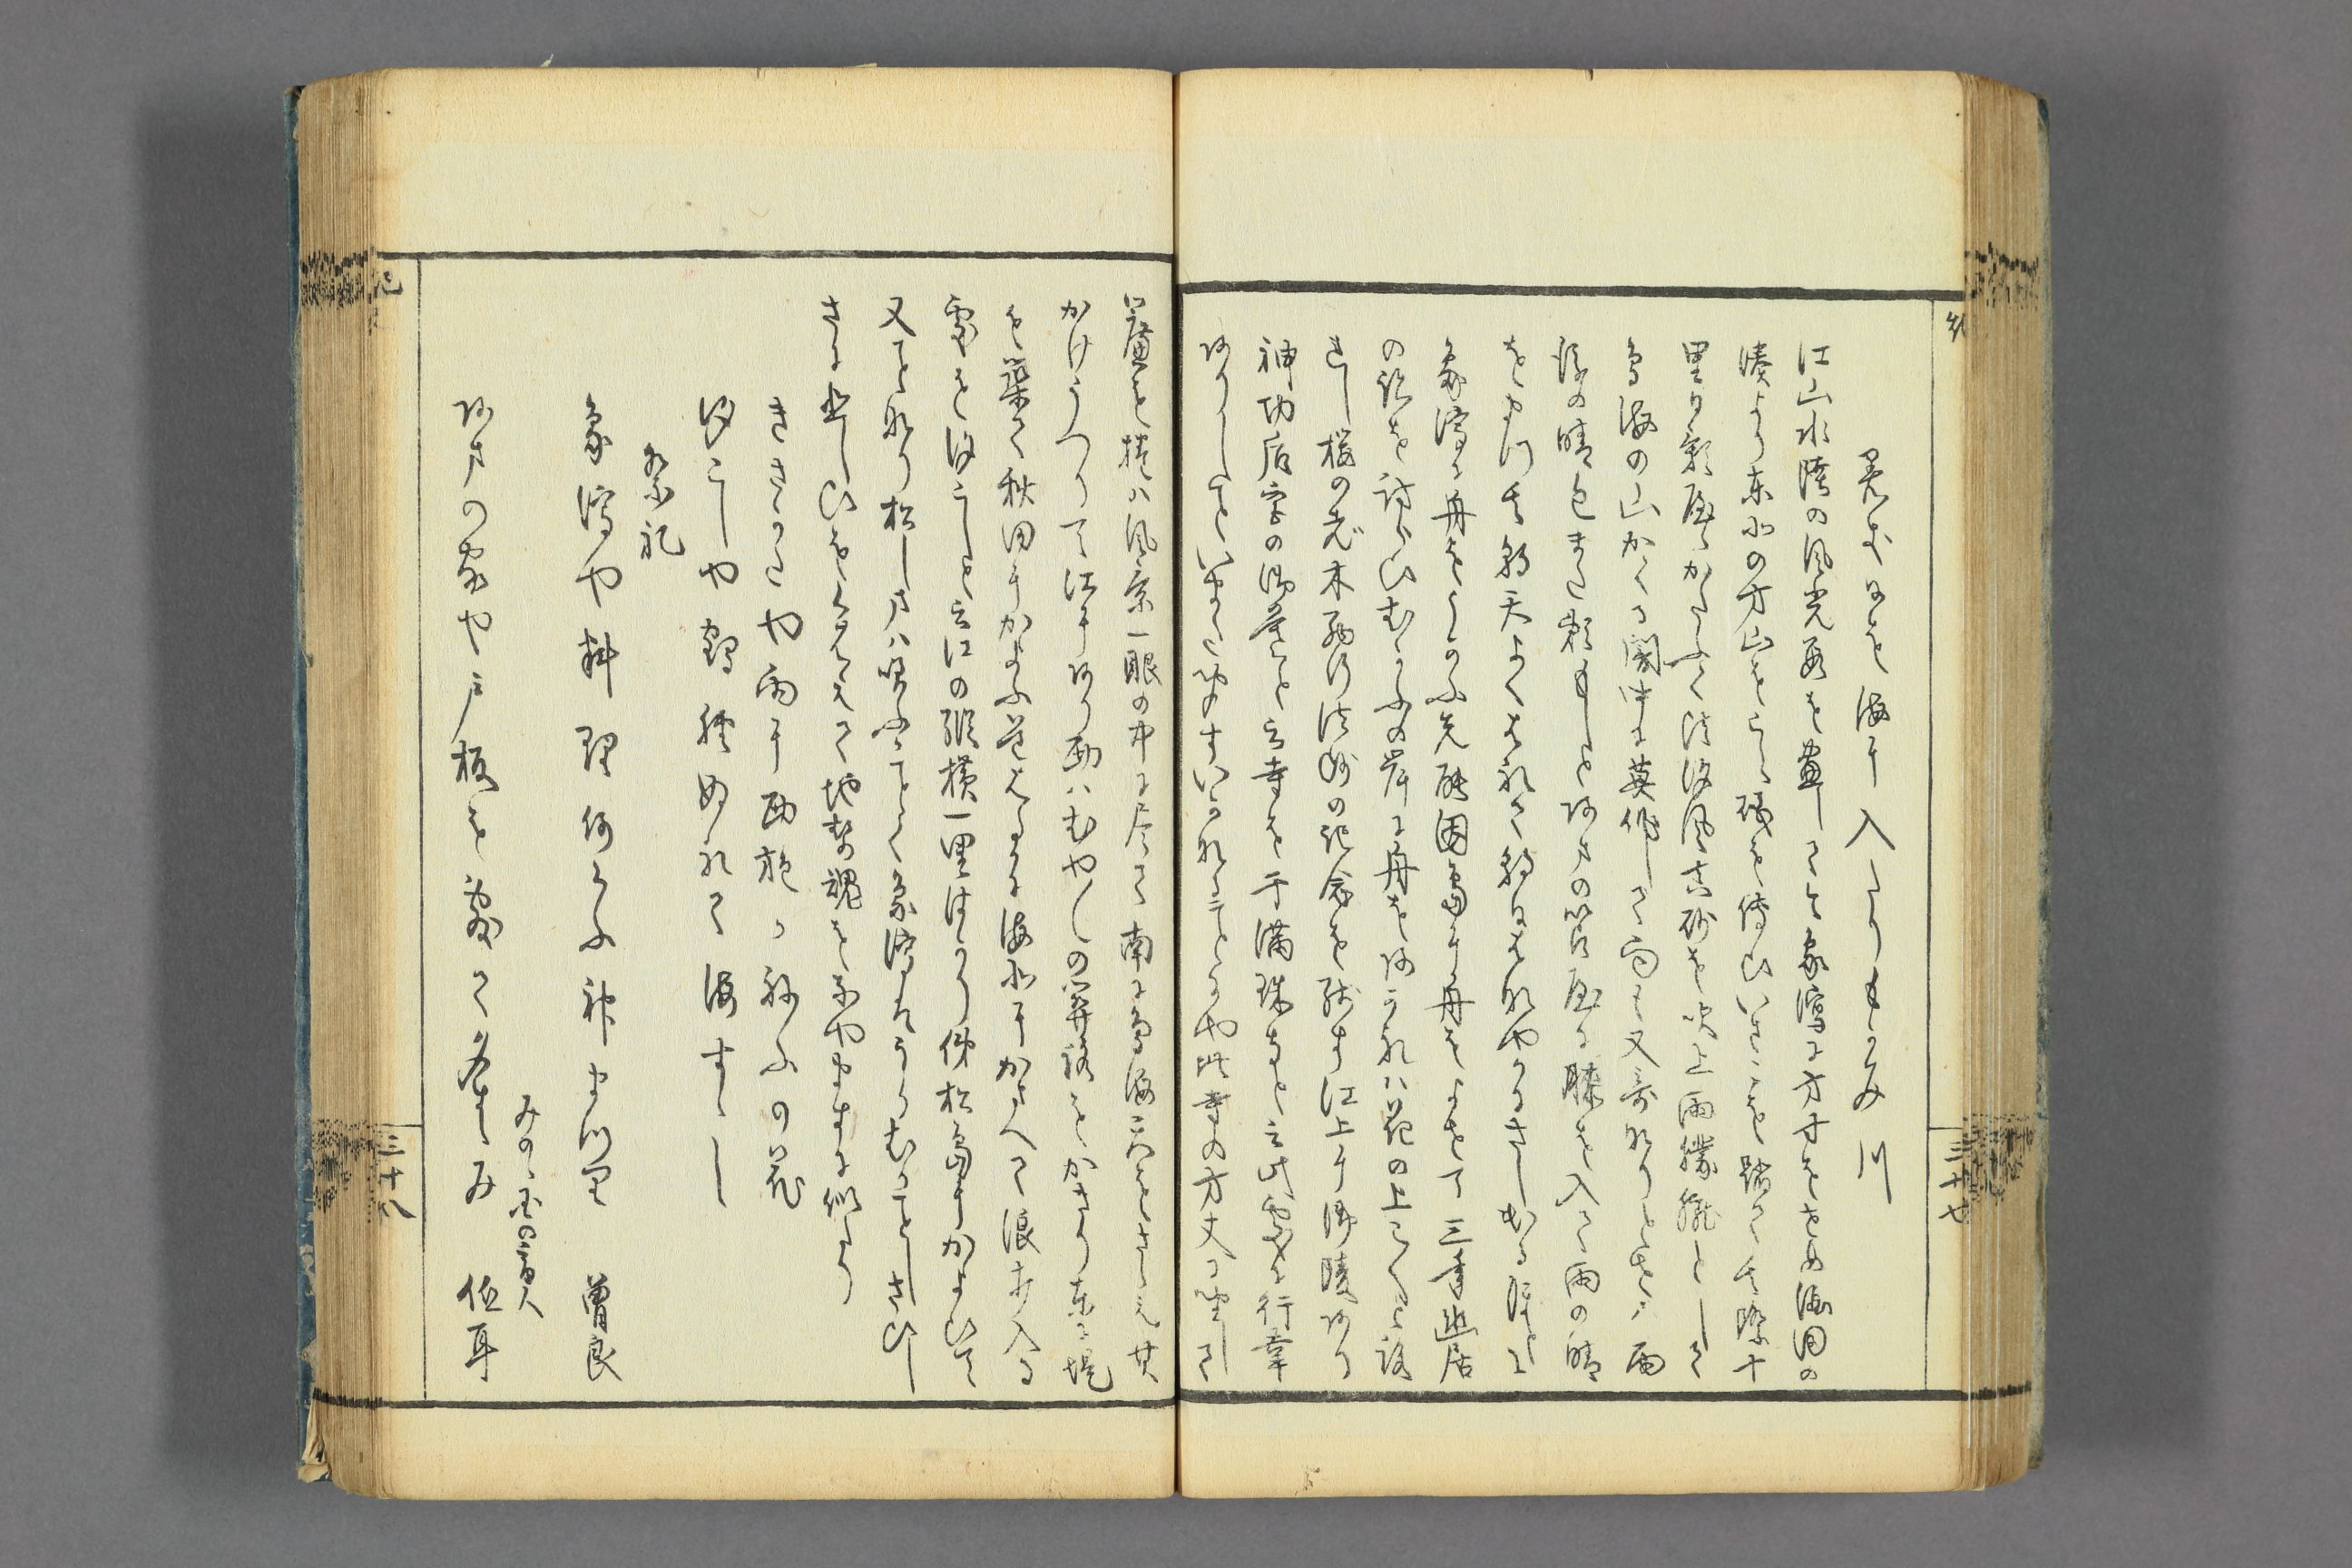 暑き日を海に入たりもかみ川
江山水陸の風光数を尽して今象潟に方寸をせむ酒田の
湊より東北の方山をこえ礒を伝ひいさこを踏て其際十
里日影やゝかたふく比汐風真砂を吹上雨朦朧として
鳥海の山かくる闇中に莫作して雨も又奇なりとせは雨
後の晴色また頼母しとあまの笘屋に膝を入て雨の晴
をまつ其朝天よく晴れて朝日花やかにさし出る程に
象潟に舟をうかふ先能因島に舟をよせて三年幽居
の跡を訪らひむかふの岸に舟をあかれは花の上こくとよま
れし桜の老木西行法師の記念を残す江上に御陵あり
神功后宮の御墓と云寺を干満珠寺と云此処に行幸
ありし事いまた聞すいかなる事にや此寺の方丈に坐して
簾を捲は風景一眼の中に尽て南に鳥海天をさゝえ其
かけうつりて江にあり西はむや〳〵の関路をかきり東に堤
を築て秋田にかよふ道はるかに海北にかまへて浪打入る
処を汐こしと云江の縦横一里はかり俤松島にかよひて
又異なり松しまは笑ふことく象潟はうらむかことしさひし
さに悲しひをくはえて地勢魂をなやますに似たり
きさかたや雨に西施かねふの花
汐こしや鶴脛ぬれて海すゝし
祭礼
象潟や料理何くふ神まつり　曽良
みのゝ国の商人
あまの家や戸板を敷て夕すゝみ　低耳
三十七
三十八